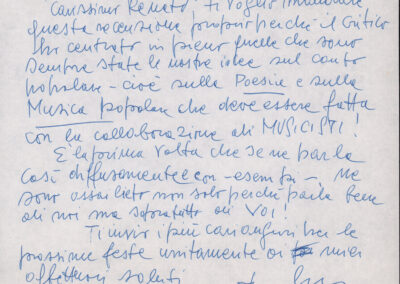 Carissimo Renato, ti voglio mandare
questa recensione proprio perché il critico
ha centrato in pieno quelle che sono
sempre state le nostre idee sul canto
popolare - cioè sulla Poesia e sulla
Musica popolare che deve essere fatta
con la collaborazione di MUSICISTI!
È la prima volta che se ne parla
così diffusamente e con - esempi -. Ne
sono
non solo perché parla bene
di noi ma soprattutto di VOI!
Ti invio i più cari auguri per le
prossime feste unitamente ai miei
affettuosi saluti